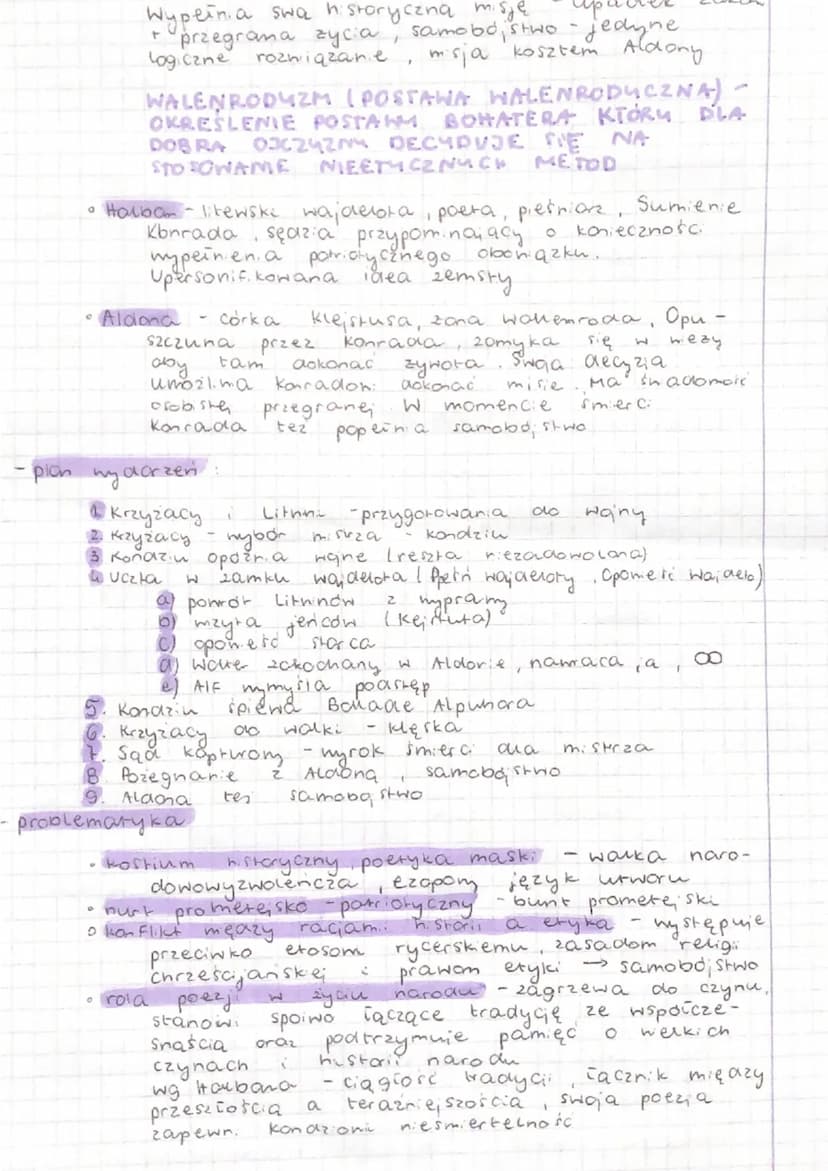 Wypełnia swą historyczną misję - upadek
+ przegrana życia, samobójstwo - jedyne
logiczne rozwiązanie, misja kosztem Aldony
WALENRODYZM (POSTAWA WALENRODYCZNA) -
OKREŚLENIE POSTAWY BOHATERA KTÓRY DLA
DOBRA OJCZYZNY DECYDUJE SIĘ NA
STOSOWANIE NIEETYCZNYCH METOD
• Halban - litewski wajdelota, poeta, pieśniarz, Sumienie
Konrada, sędzia przypominający o konieczności
wypełnienia patriotycznego obowiązku.
Upersonifikowana idea zemsty
• Aldona - córka Kiejstuta, żona Wallenroda, Opu-
szczona przez Konrada, zamyka się w wieży
aby tam dokonać żywota. Swoją decyzją
umożliwia Konradowi dokonać misję. Ma świadomość
osobistej przegranej. W momencie śmierci
Konrada też popełnia samobójstwo
- plan wydarzeń:
1. Krzyżacy i Litwini - przygotowania do wojny
2. Krzyżacy - wybór mistrza - kondziu
3 Kondziu opóźnia wojnę (reszta niezadowolona)
4 Uczta w zamku wajdelota (Pieśń wajdeloty, Opowieść wajdelo)
a) powrót Litwinów z wyprawy
b) wizyta jeńców (Kiejstuta)
c) opowieść starca
d) Walter zakochany w Aldonie, nawraca ją, ∞
e) Alf wymyśla podstęp
5. Kondziu śpiewa Balladę Alpuhara
6. Krzyżacy do walki - klęska
7. Sąd kapturowy - wyrok śmierci dla mistrza
8 Pożegnanie z Aldoną, samobójstwo
9. Aldona też samobójstwo
- problematyka
• kostium historyczny, poetyka maski - walka naro-
dowowyzwoleńcza, ezopowy język utworu
• nurt prometejsko - patriotyczny - bunt prometejski
• konflikt między racjami historii a etyką - występuje
przeciwko etosom rycerskiemu, zasadom religii
chrześcijańskiej i prawom etyki → samobójstwo
• rola poezji w życiu narodu - zagrzewa do czynu,
stanowi spoiwo łączące tradycję ze współcze-
snością oraz podtrzymuje pamięć o wielkich
czynach i historii narodu
wg Halbana - ciągłość tradycji, łącznik między
przeszłością a teraźniejszością, swoją poezją
zapewni kondziowi nieśmiertelność